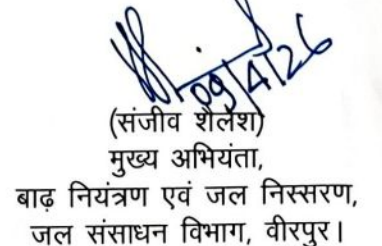 09/4/26
(संजीव शैलेश)
मुख्य अभियंता,
बाढ़ नियंत्रण एवं जल निस्सरण,
जल संसाधन विभाग, वीरपुर।